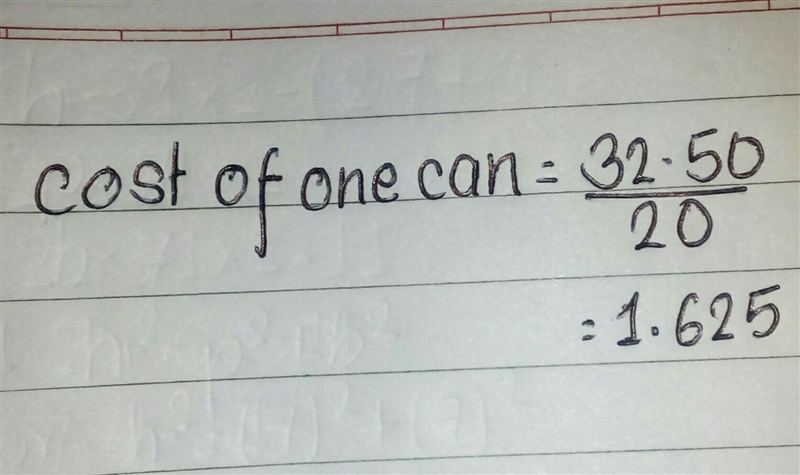 cost of one can = 32.50/20
= 1.625